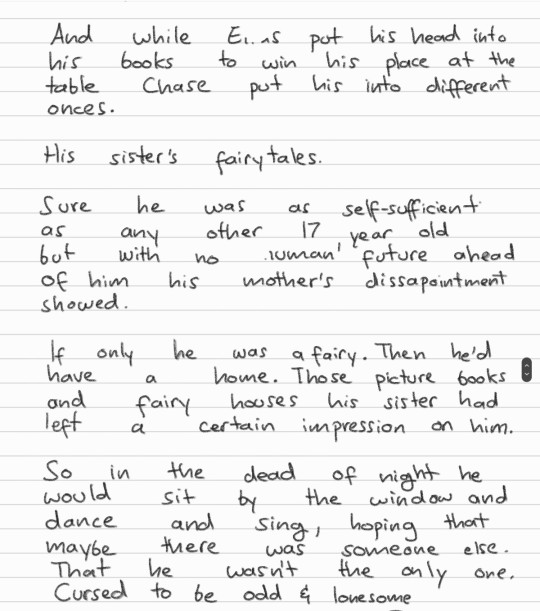 And while put his head into
his books to win his place at the
table Chase put his into different
onces.
His sister's fairytales.
Sure he was as self-sufficient
as any other 17 year old
but with no future ahead
of him his mother's dissapointment
showed.
If only he was a fairy. Then he'd
have a home. Those picture books
and fairy houses his sister had
left a certain impression on him.
So in the dead of night he
would sit by the window and
dance and sing, hoping that
maybe there was someone else.
That he wasn't the only one.
Cursed to be odd & lonesome